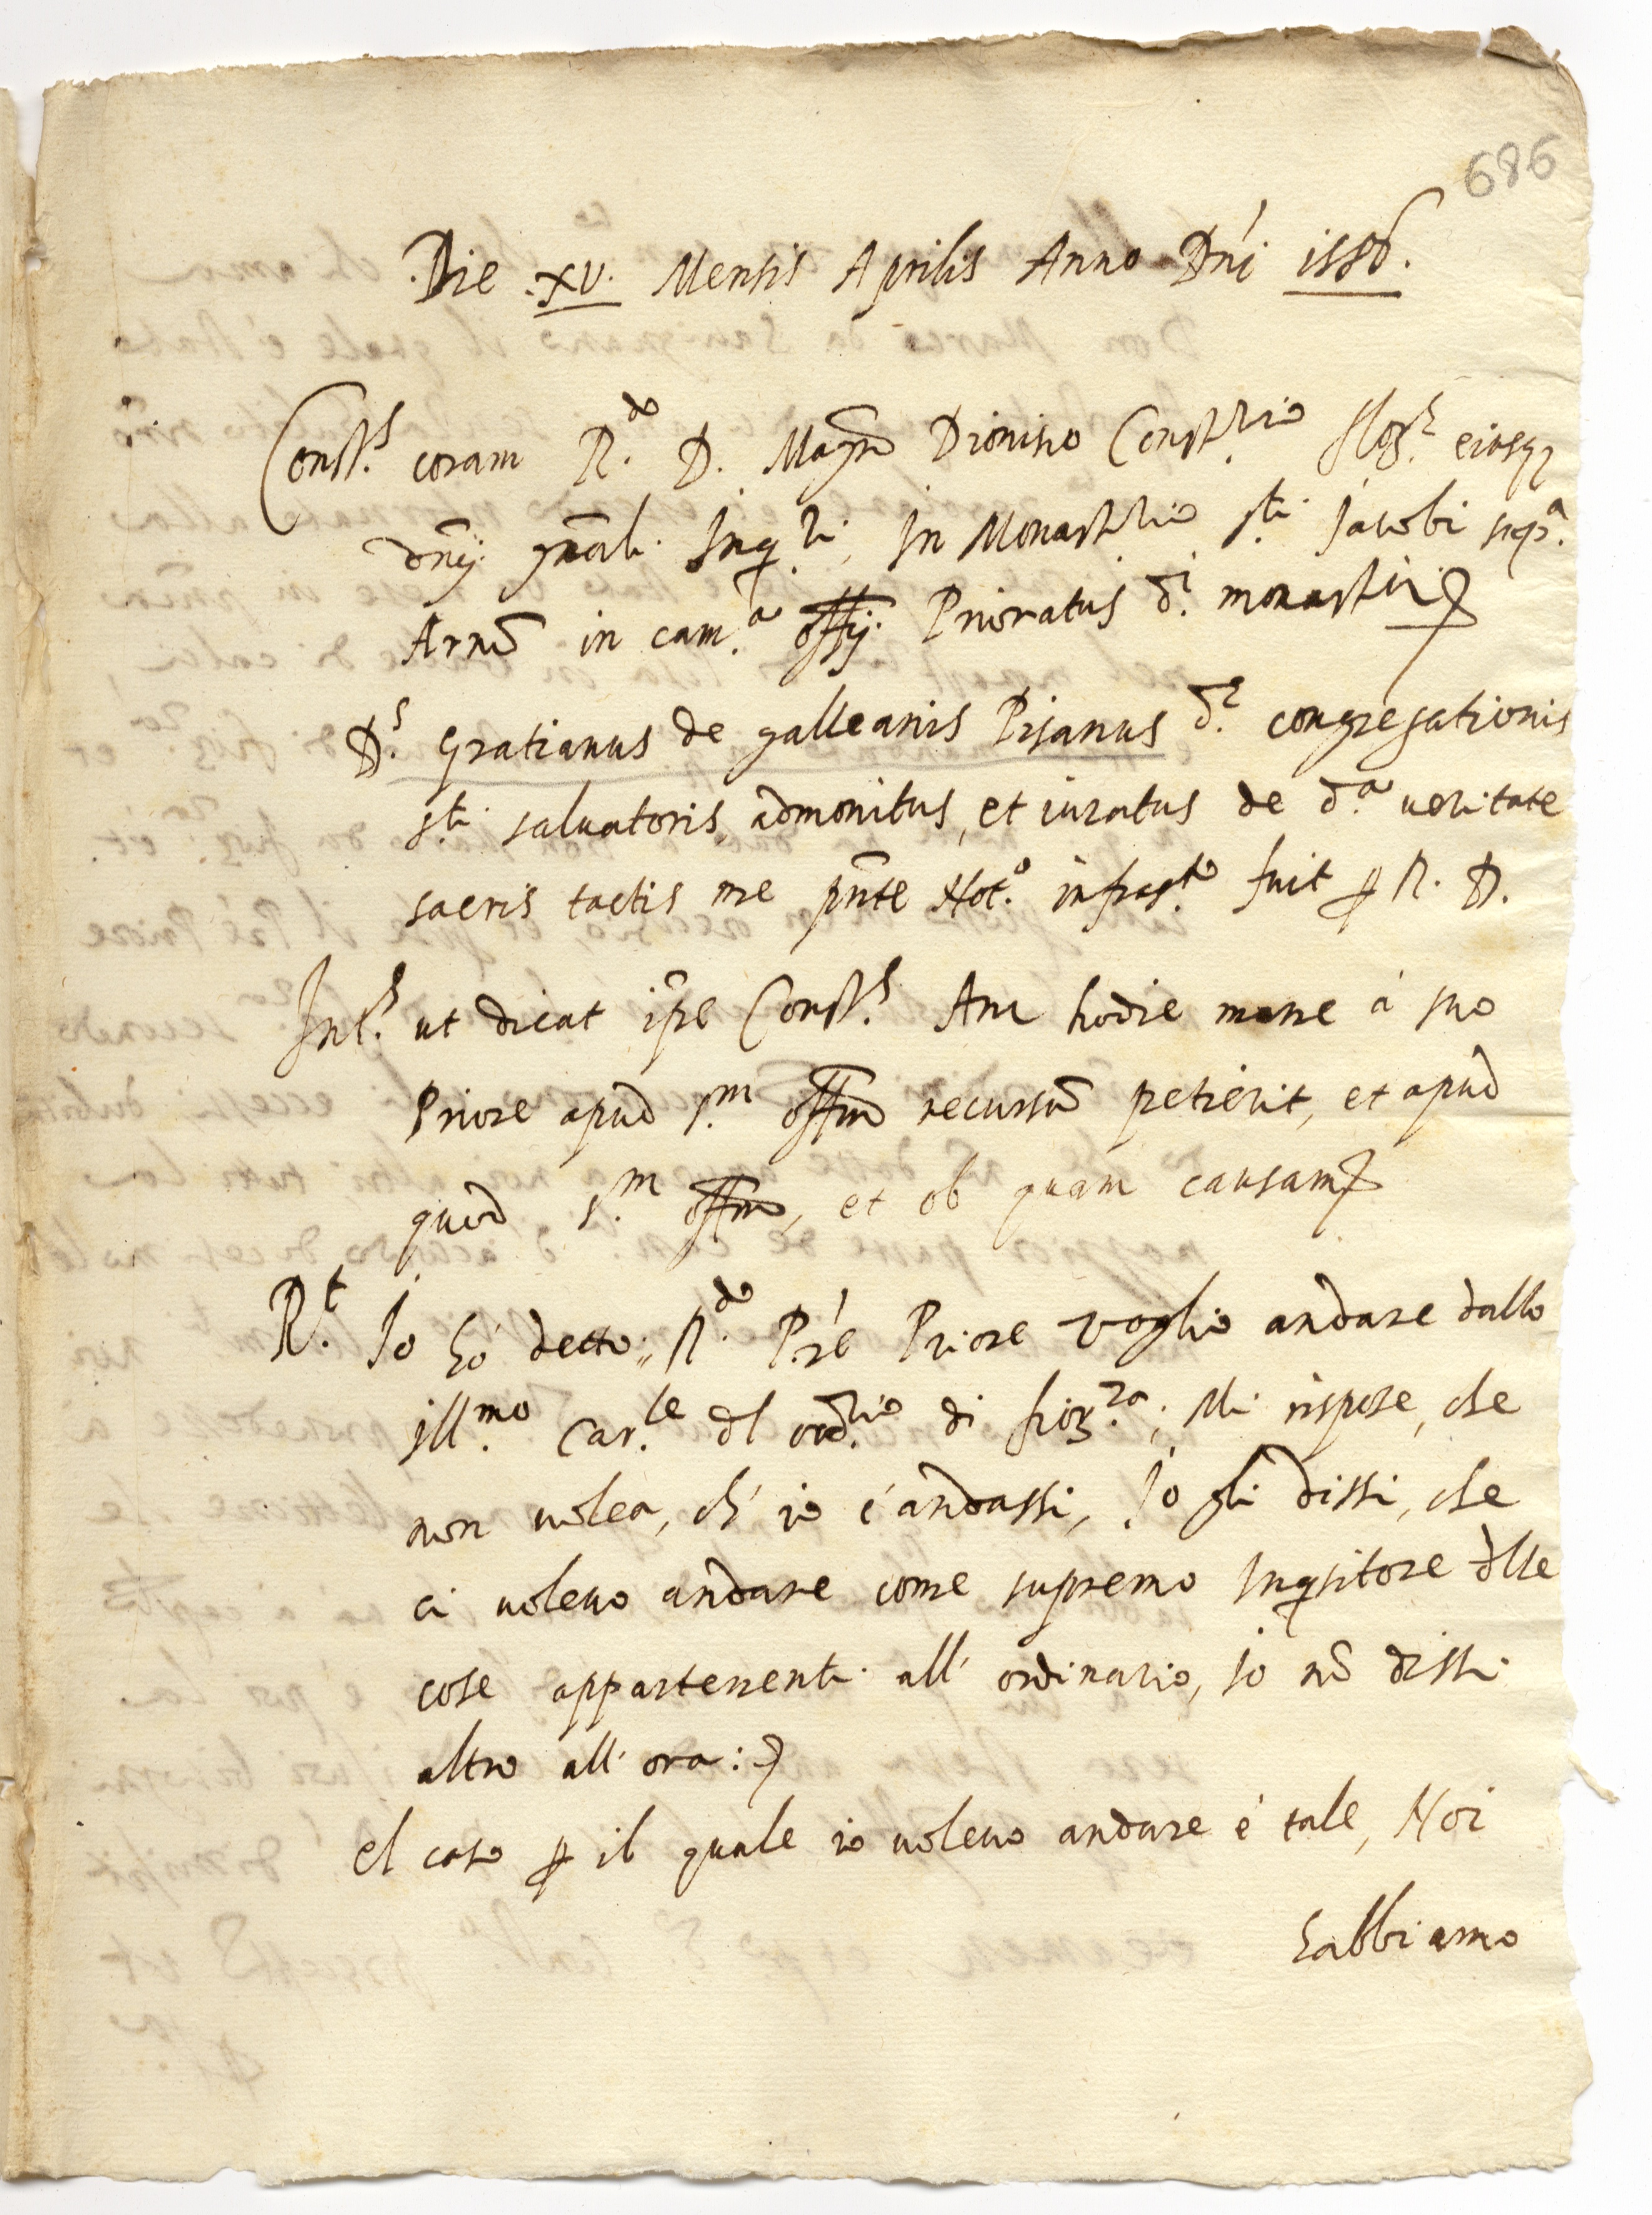 686
Die .XV. Mensis Aprilis Anno Dn̄i
Const.s coram R.do D. Magr̄o Dionisio Const.rio flor.e eiusq3
dn̄ij gn̄ali Inq.ri, In Monast.rio s.ti Jacobi sup.a
Arnū in cam.a offij. Prioratus d.i monasterij
D.s Gratianus de galleanis Pisanus d.e congregationis
s.ti saluatoris, admonitus, et iuratus de d.a ueritate
sacris tactis me pn̄te Not.o infras.to fuit ꝑ R. D.
Int.s ut dicat ip̄e Const.s An hodie mane á suo
Priore apud s.m offm̄ recursū petierit, et apud
quod s.m offm̄, et ob quam causam
R.t Io hó detto, R.do P.rē Priore voglio andare dallo
Ill.mo Car.le dl ord.rio di fior.za; Mi rispose, che
non uolea, ch' io c'andassi, Io gli dissi, che
ci uoleuo andare come supremo Inqsitore dlle
cose appartenenti all' ordinario, io nō dissi
altro all' ora:
el caso ꝑ il quale io uoleuo andare é tale, Noi
habbiamo